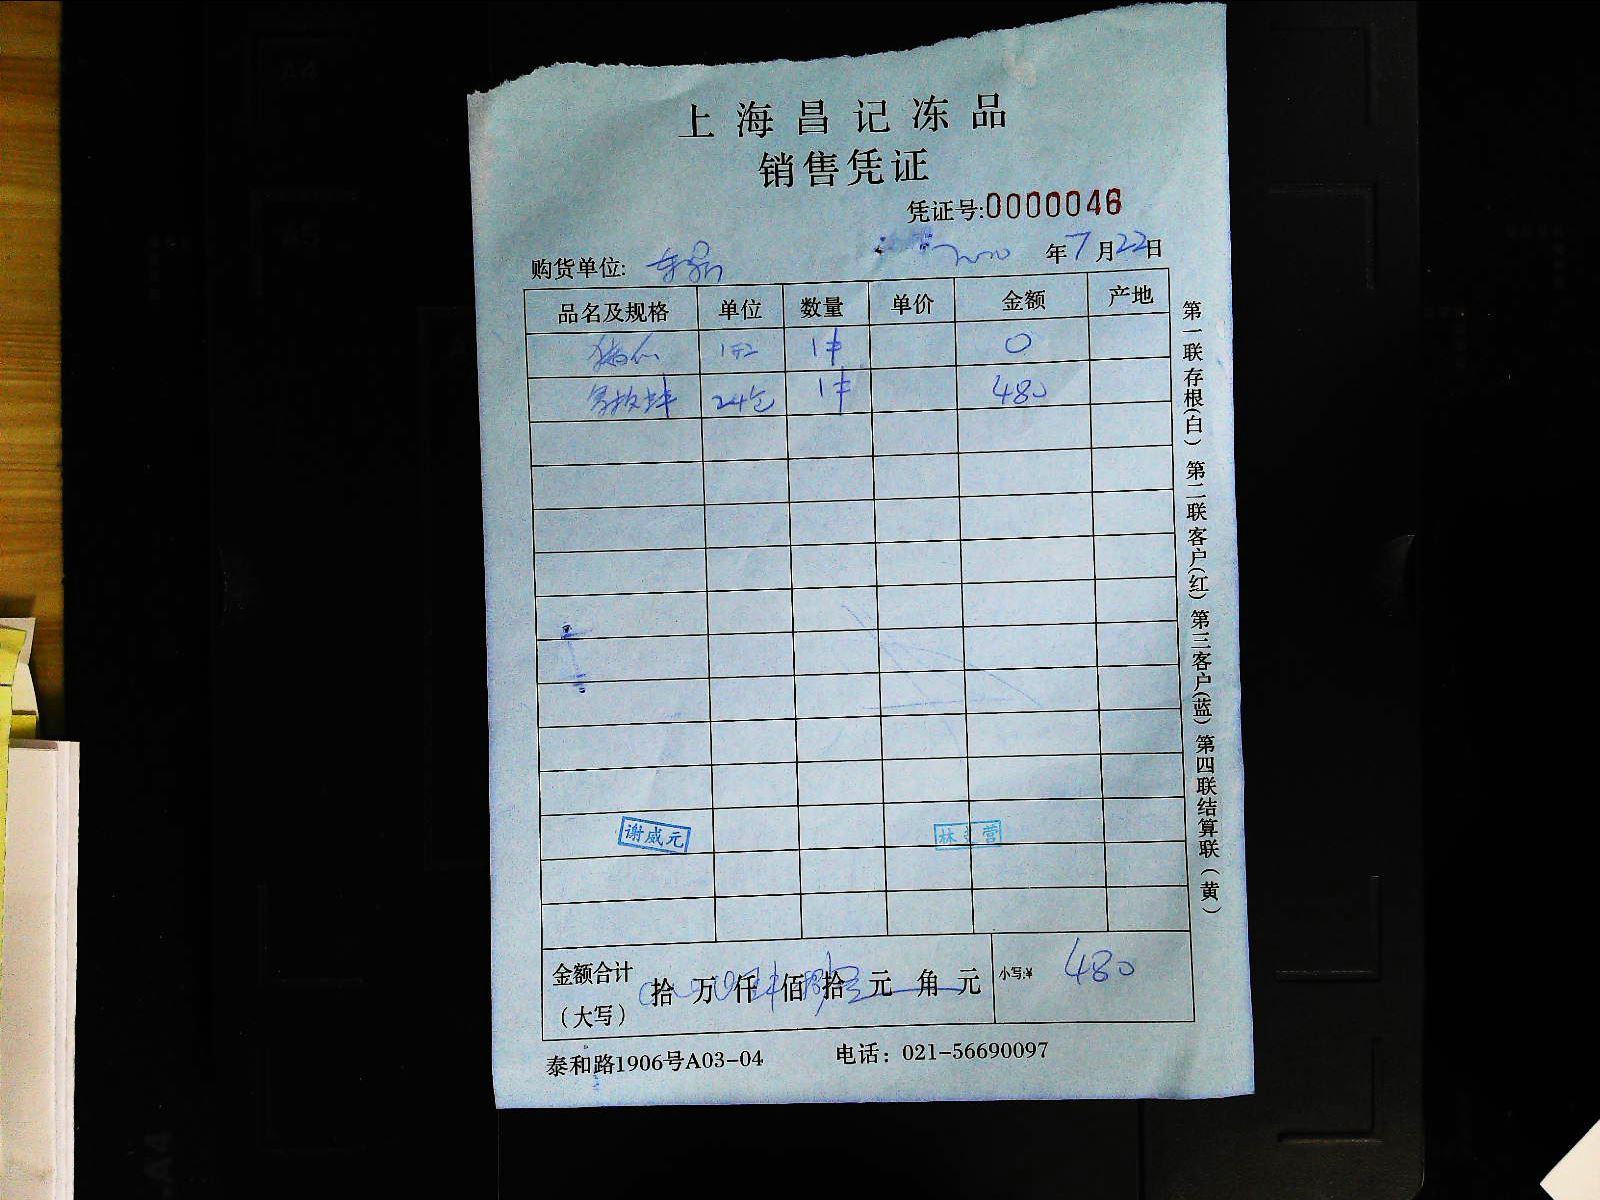 上海昌记冻品
销售凭证
凭证号:0000046
购货单位: 年7月22日
品名及规格 单位 数量 单价 金额 产地
1件 0
24包 1件 480
谢威元 林 营
金额合计
(大写) 拾 万 仟 佰 拾 元 角 元 小写:¥ 480
泰和路1906号A03-04 电话: 021-56690097
第一联存根(白) 第二联客户(红) 第三客户(蓝) 第四联结算联(黄)